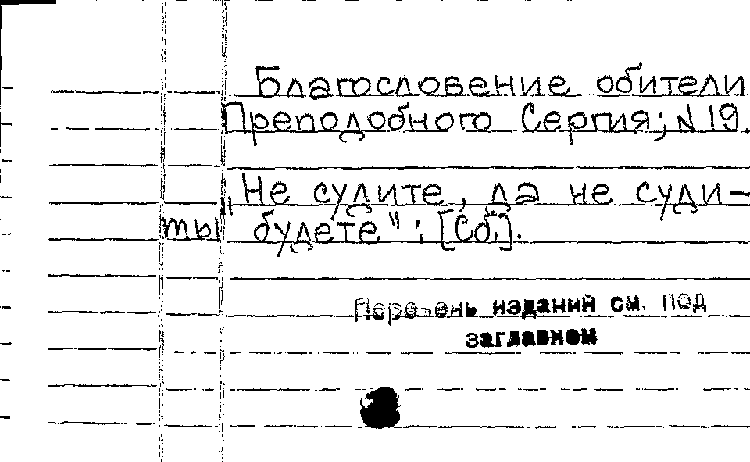 Благословение обители
Преподобного Сергия; N 19.
"Не судите, да не суди-
мы будете"; [Сб.].
Перечень изданий см. под
заглавием